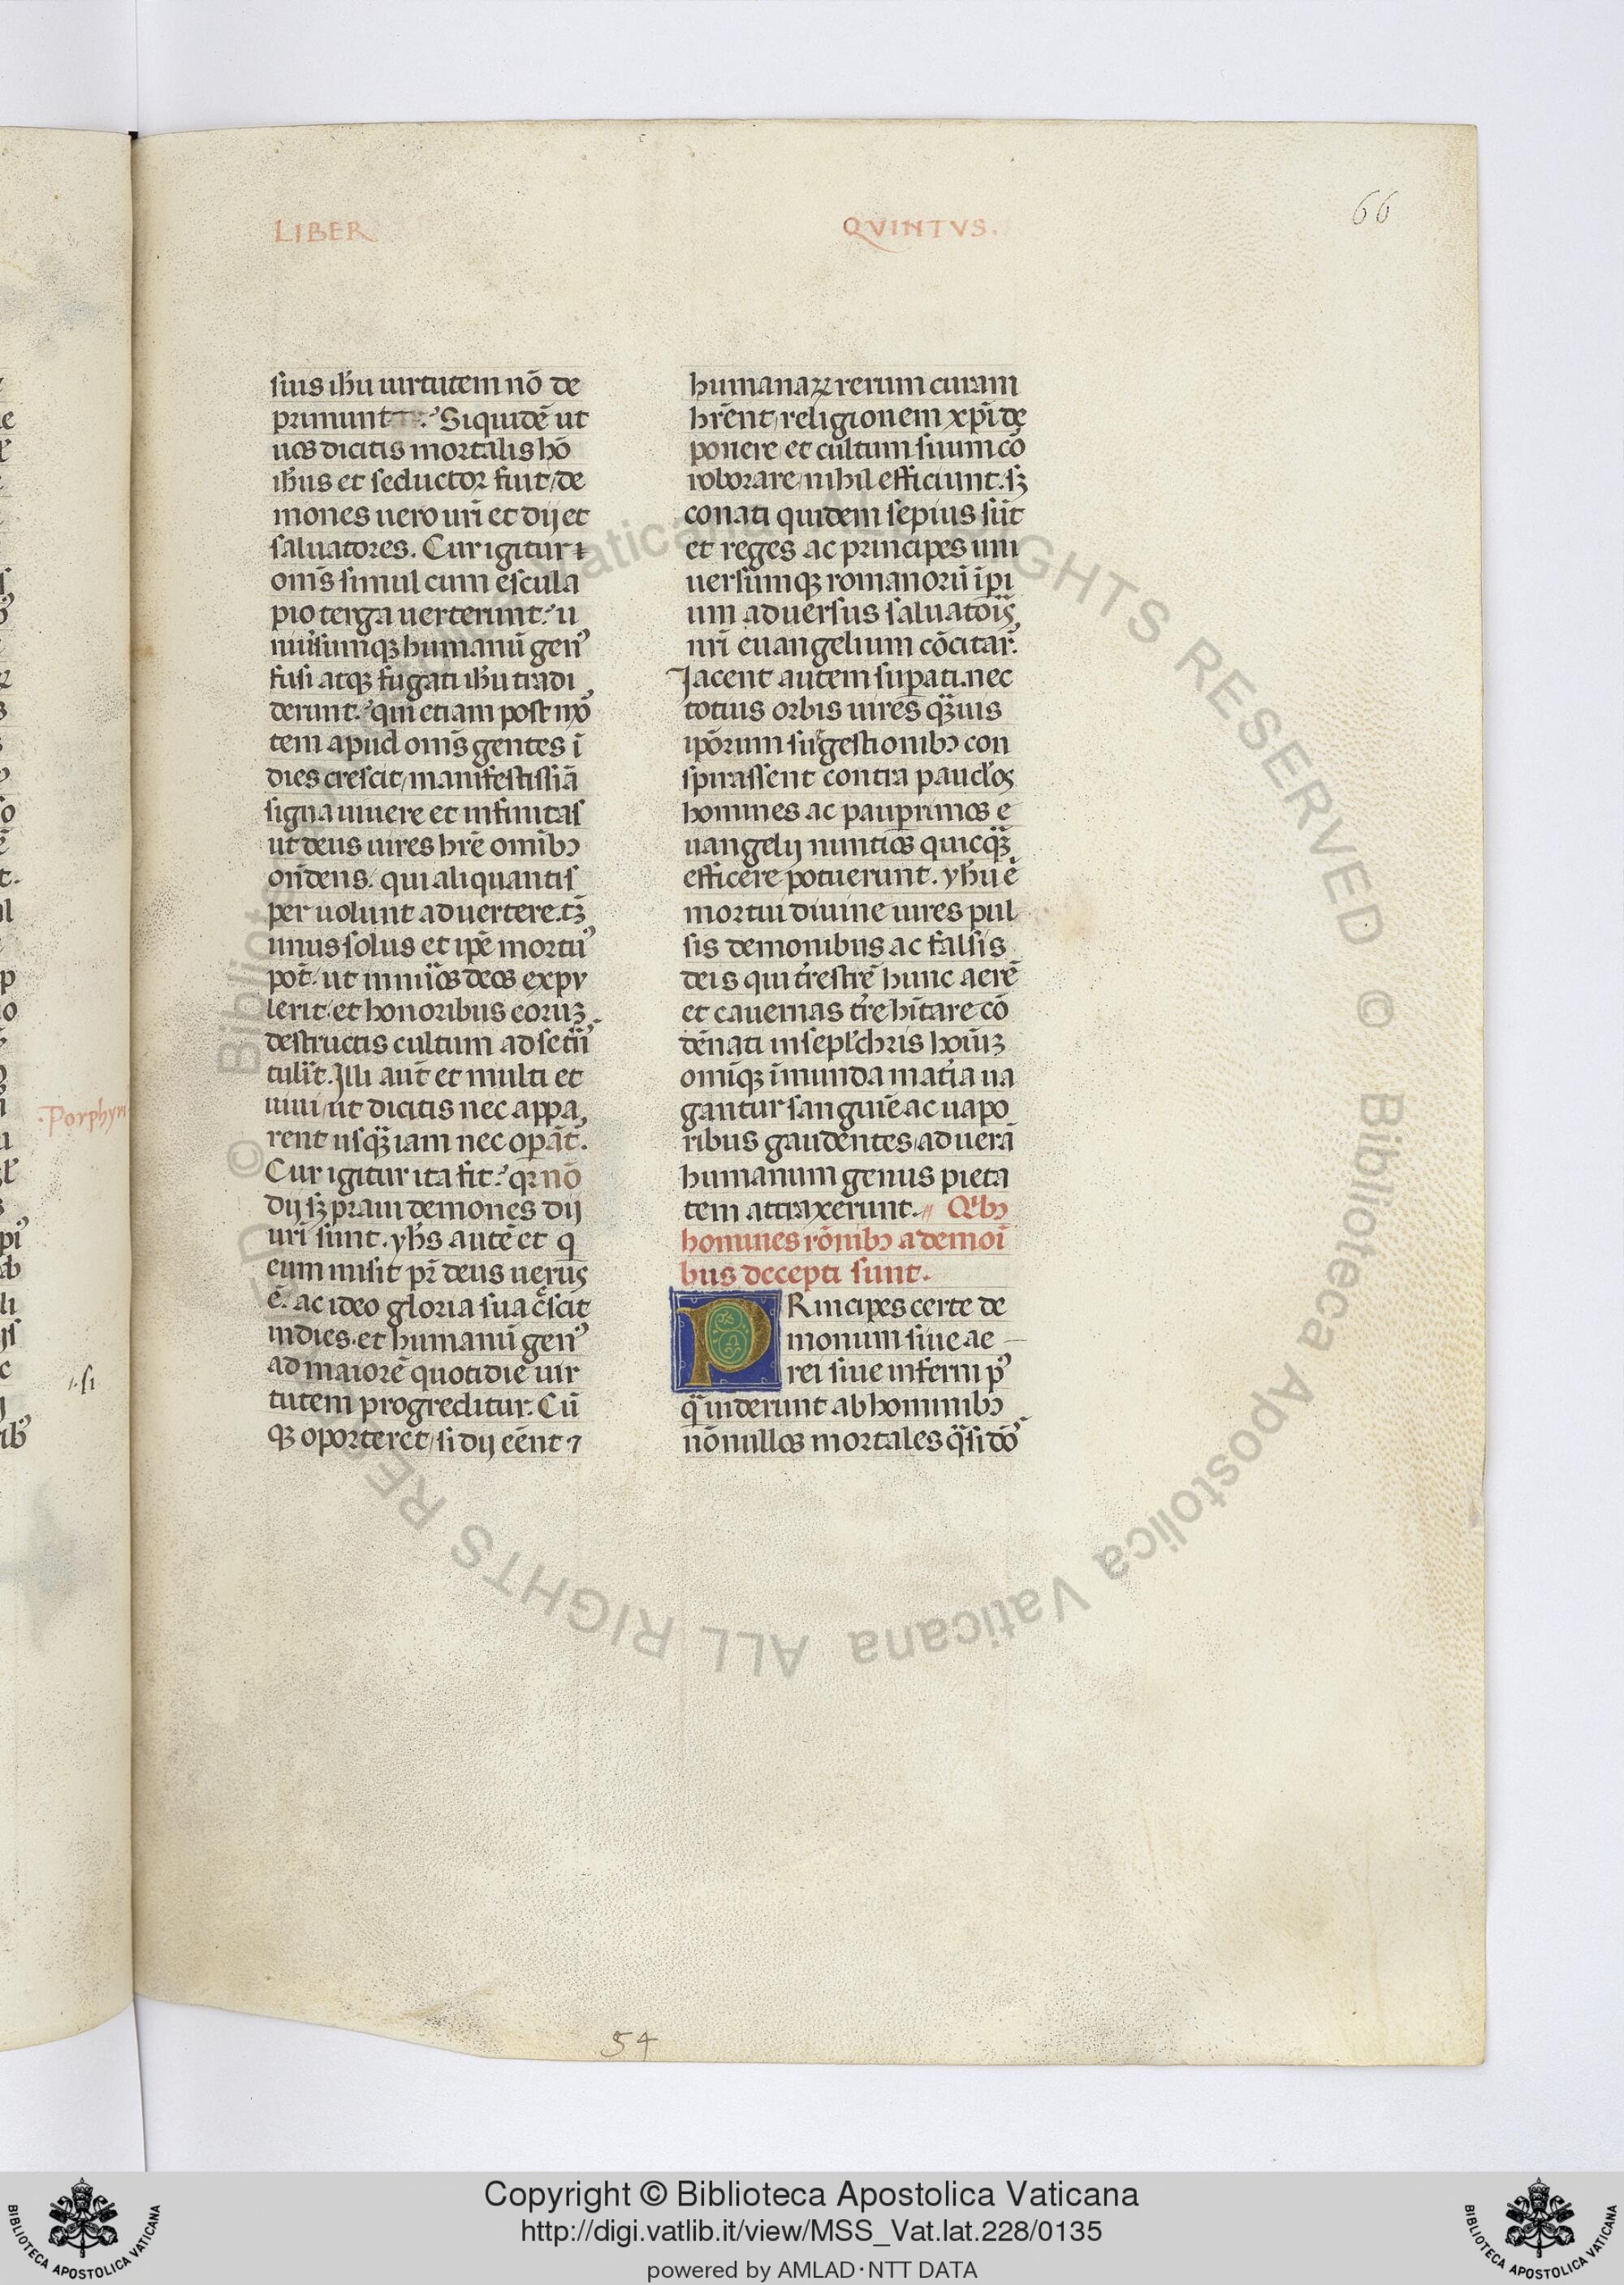 LIBER
QVINTVS.
66
sius ihu uirtutem nō de
primunt:·Siquidē ut
uos dicitis mortalis hō
ihus et seductor fuit/de
mones uero uri et dij et
saluatores. Cur igitur
oms simul cum escula
pio terga uerterunt:· u
niusumqꝫ humanū genꝰ
fusi atqꝫ fugati ihu tradi
derunt:· qui etiam post
tem apud oms gentes ī
dies crescit/manifestissiā
signa uiuere et infinitas
ut deus uires hrē omibꝫ
ondens. qui aliquantis
per uolunt aduertere.
unus solus et ipē mortuꝰ
pot̄. ut inniuos deos expu
lerit/et honoribus eoruꝫ
destructis cultum ad se
tulit. Illi aūt et multi et
uiui/ut dicitis nec appa
rent usqꝫ iam nec operāt̄.
Cur igitur ita fit:· qꝛ nō
dij sꝫ praui demones dij
uri sunt. yhs autē et q
eum misit pr̄ deus uerus
ē. ac ideo gloria sua cscit
indies. et humanū genꝰ
ad maiorē quotidie uir
tutem progreditur. Cū
qꝫ oporteret/si dij eēnt ⁊
humanaꝝ rerum curam
hrēnt/religionem xpi de
ponere et cultum suum cō
roborare/nihil efficiunt. sꝫ
conati quidem sepius sūt
et reges ac principes uni
uersumqꝫ romanorū īpi
um aduersus saluatoris
nri euangelium cōcitar̄.
Jacent autem supati. nec
totius orbis uires quis
ipōrum sugestionibꝫ con
spirassent contra paucos
homines ac pauprimos e
uangelij nuntios quicqꝫ
efficere potuerunt. yhu ē
mortui diuine uires pul
sis demonibus ac falsis
deis qui trestrē hunc aerē
et cauernas tre hitare cō
dēnati in seplchris hoiuꝫ
omiqꝫ īmunda matia ua
gantur sanguīe ac uapo
ribus gaudentes/ad uerā
humanum genus pieta
tem attraxerunt. Qibꝫ
homines rōnibꝫ a demoī
bus decepti sunt.
PRincipes certe de
monum siue ae
rei siue inferni pꝰ
q uiderunt ab hominibꝫ
nōnullos mortales qsi dōs
.Porphyri
54
Copyright © Biblioteca Apostolica Vaticana
http://digi.vatlib.it/view/MSS_Vat.lat.228/0135
powered by AMLAD·NTT DATA
BIBLIOTECA APOSTOLICA VATICANA
BIBLIOTECA APOSTOLICA VATICANA
© Biblioteca Apostolica Vaticana ALL RIGHTS RESERVED © Biblioteca Apostolica Vaticana ALL RIGHTS RESERVED